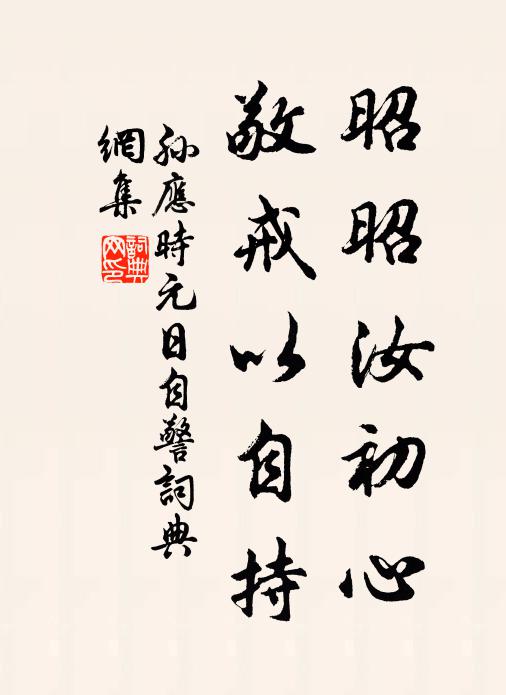 昭昭汝初心
敬戒以自持
孙應時元日自警詞典
網集
詞典
网印